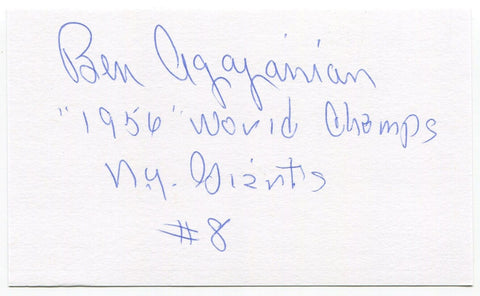 Ben Agajanian
"1956" World Champs
N.Y. Giants
#8